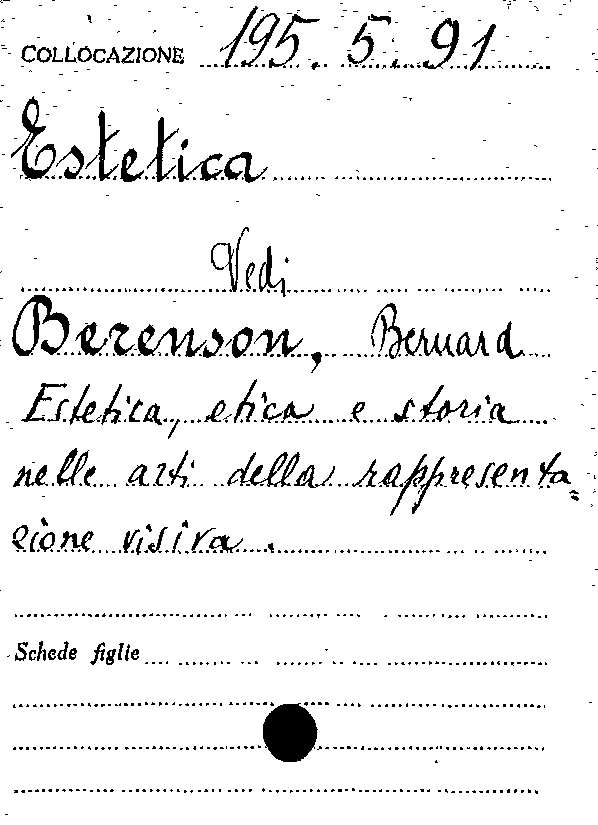 COLLOCAZIONE 195. 5. 91
Estetica
Vedi
Berenson, Bernard
Estetica, etica e storia
nelle arti della rappresenta=
zione visiva.
Schede figlie